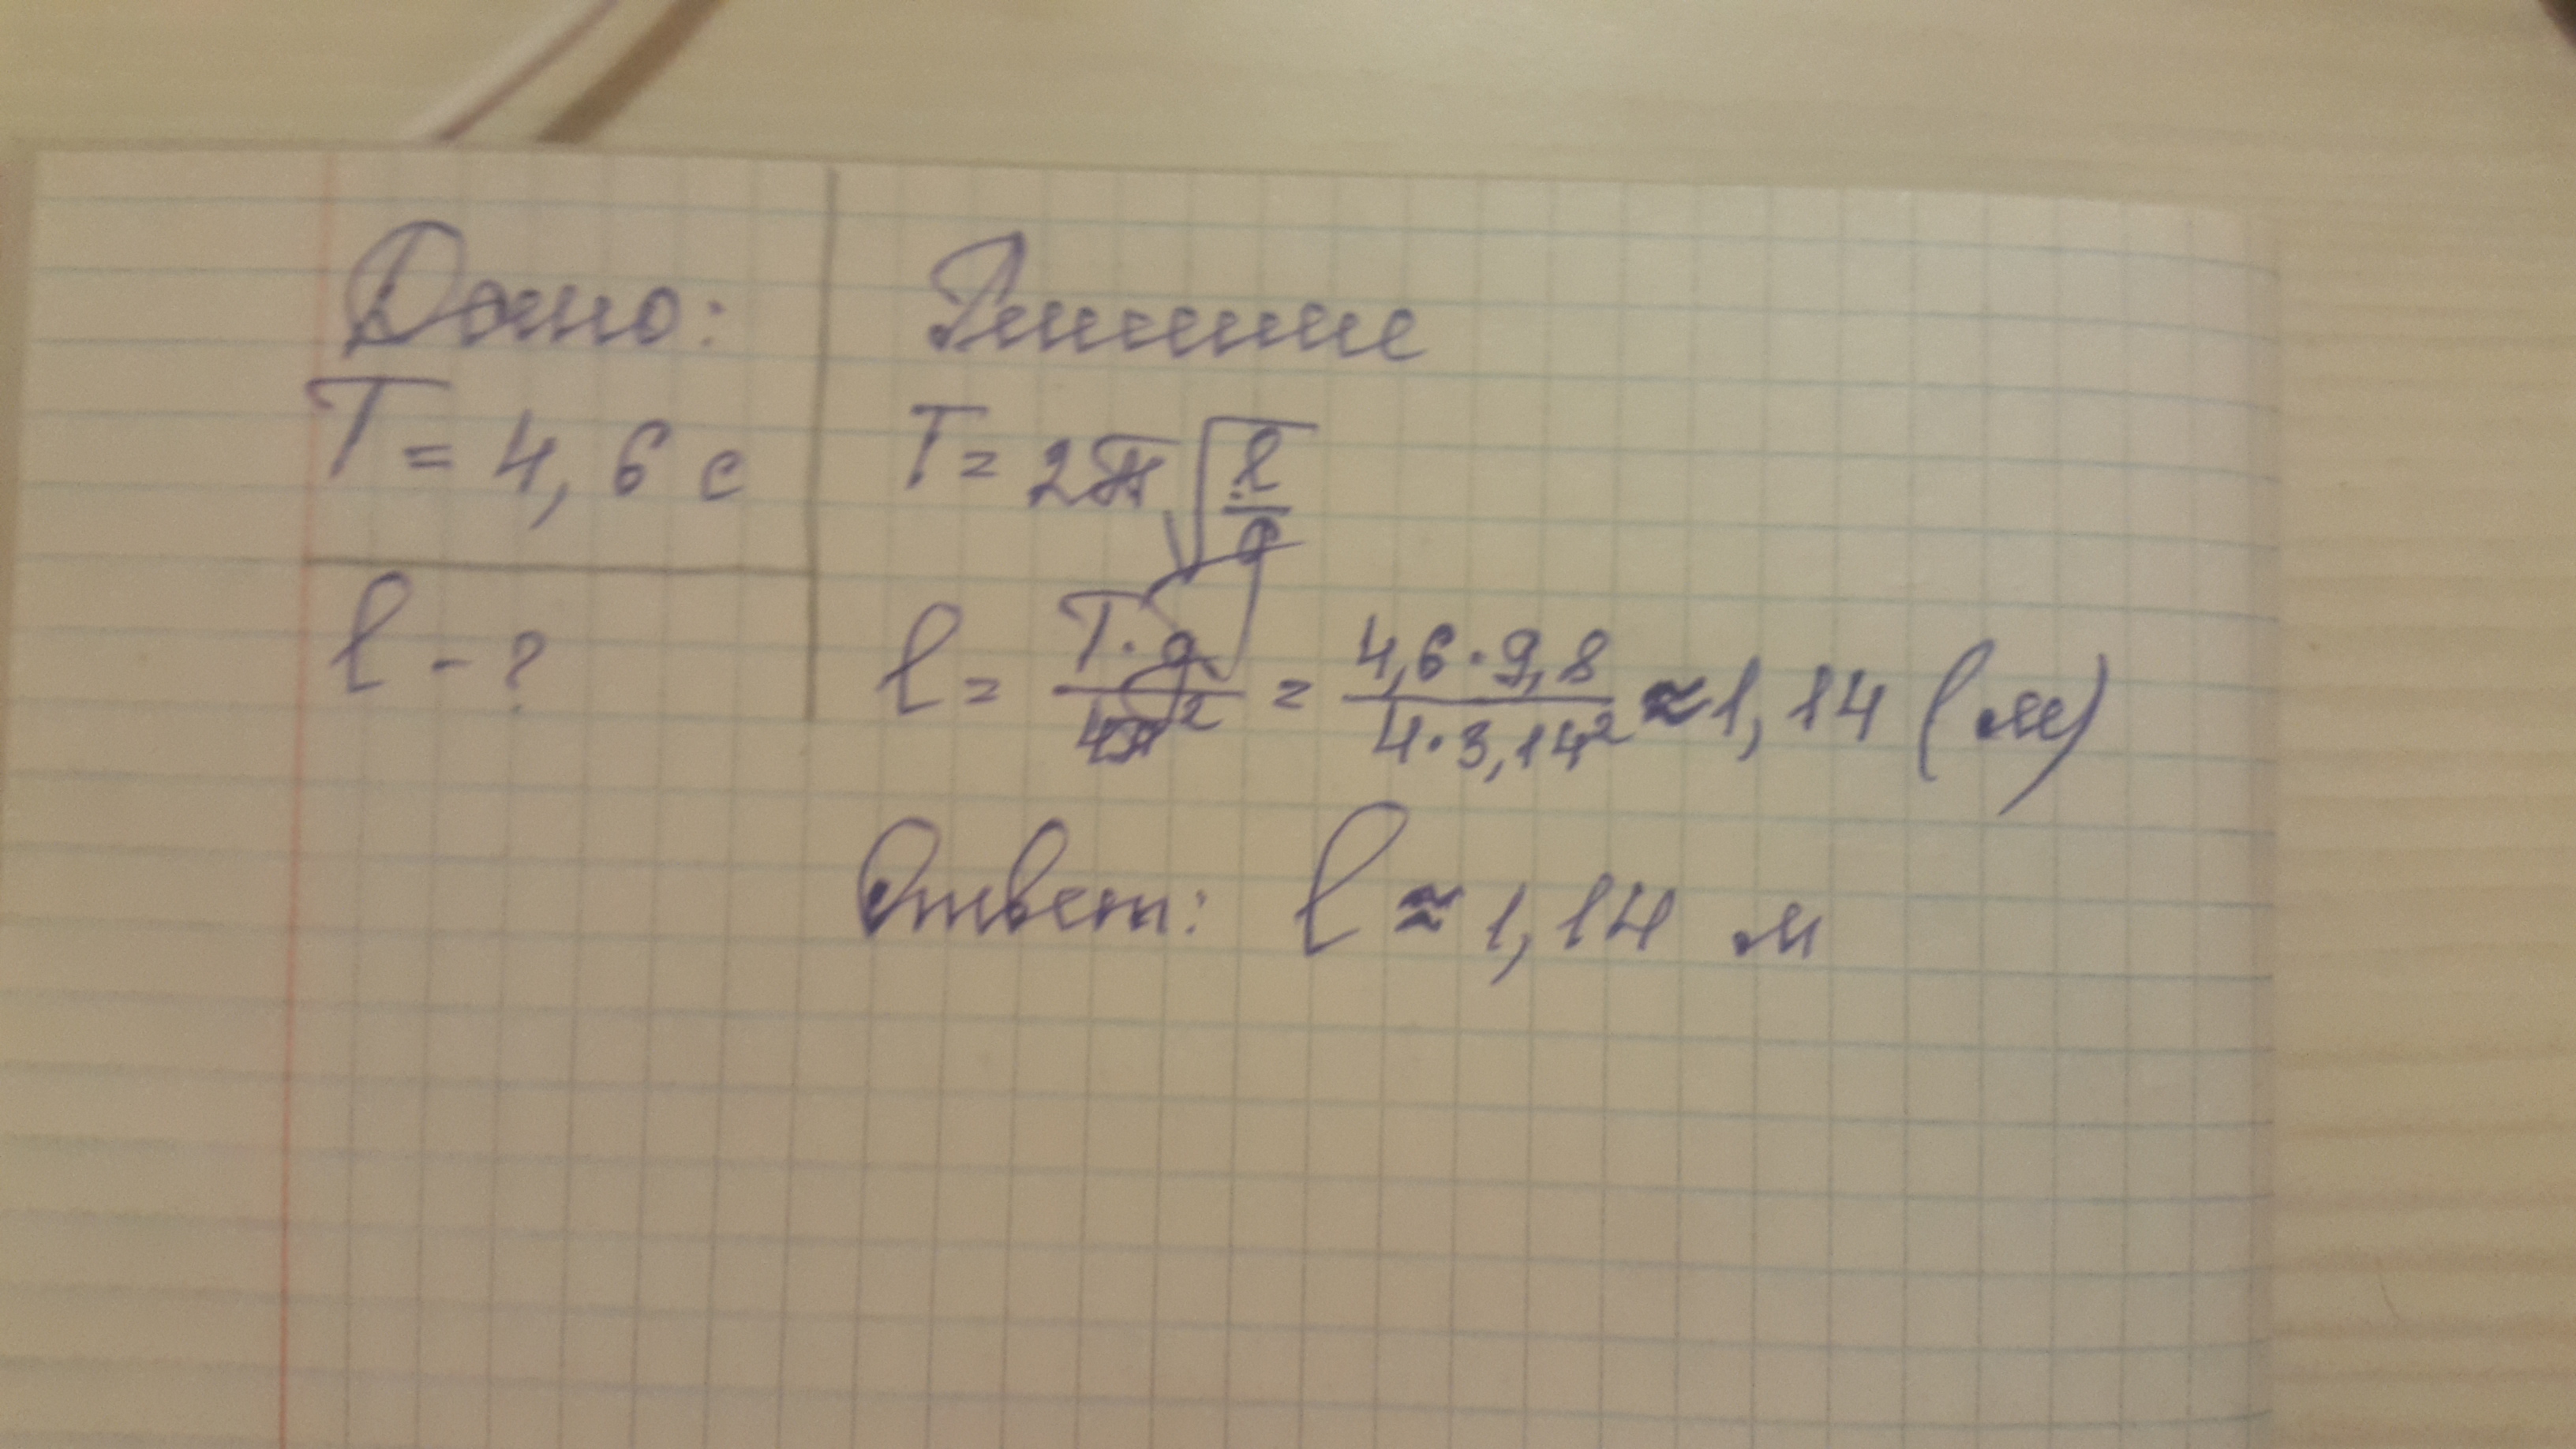 Дано:
T = 4,6 с
l - ?
Решение
T = 2π√(l/g)
l = T·g/4π² = 4,6·9,8/4·3,14² ≈ 1,14 (м)
Ответ: l ≈ 1,14 м